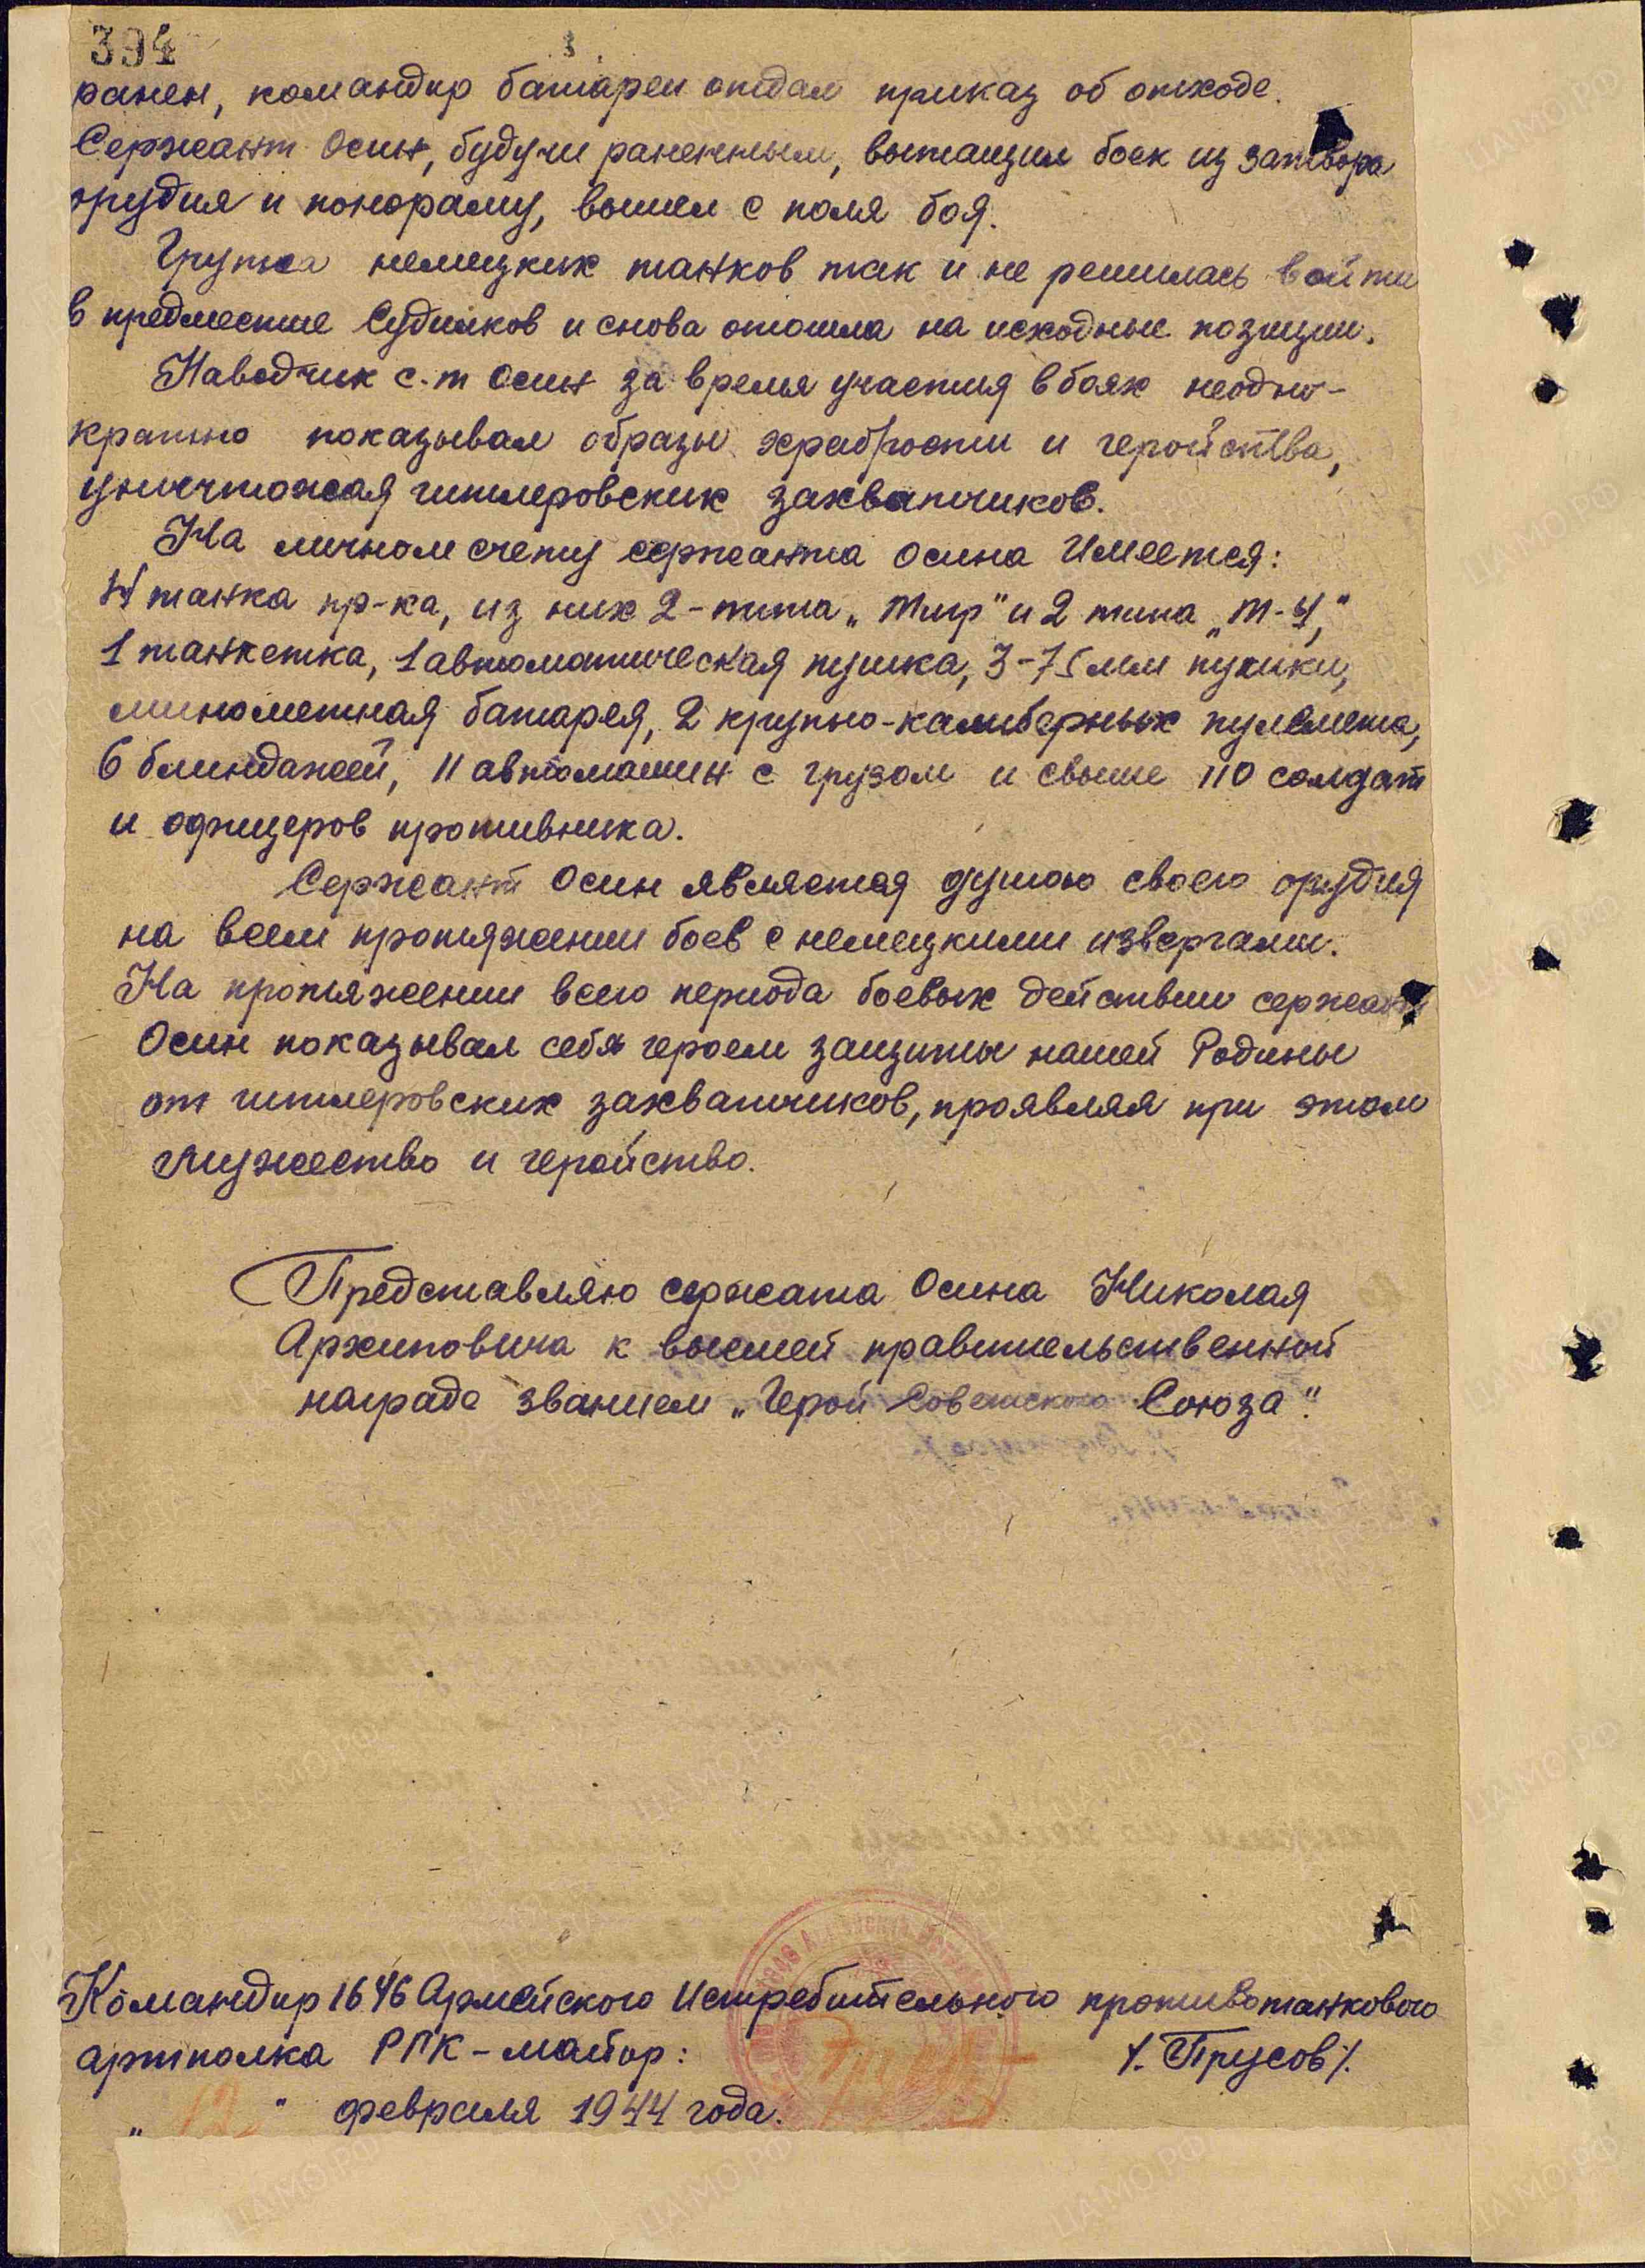 394
3
ранен, командир батареи отдал приказ об отходе.
Сержант Осин, будучи раненным, вытащил боек из затвора
орудия и понораму, вышел с поля боя.
Группа немецких танков так и не решилась войти
в предместие Судилков и снова отошла на исходные позиции.
Наводчик с.т Осин за время участия в боях неодно-
кратно показывал образы храбрости и геройства,
уничтожая гитлеровских захватчиков.
На личном счету сержанта Осина Имеется:
4 танка пр-ка, из них 2-типа „Тигр" и 2 типа „Т-4,"
1 танкетка, 1 автоматическая пушка, 3-75 мм пушки,
минометная батарея, 2 крупно-калиберных пулемета,
6 блиндажей, 11 автомашин с грузом и свыше 110 солдат
и офицеров противника.
Сержант Осин является душою своего орудия
на всем протяжении боев с немецкими извергами.
На протяжении всего периода боевых действии сержант
Осин показывал себя героем защиты нашей Родины
от гитлеровских захватчиков, проявляя при этом
мужество и геройство.
Представляю сержата Осина Николая
Архиповича к высшей правительственной
награде званием „Герой Советского Союза".
Командир 1646 Армейского Истребительного противотанкового
артполка РГК-майор: /. Прусов /.
„12" февраля 1944 года.